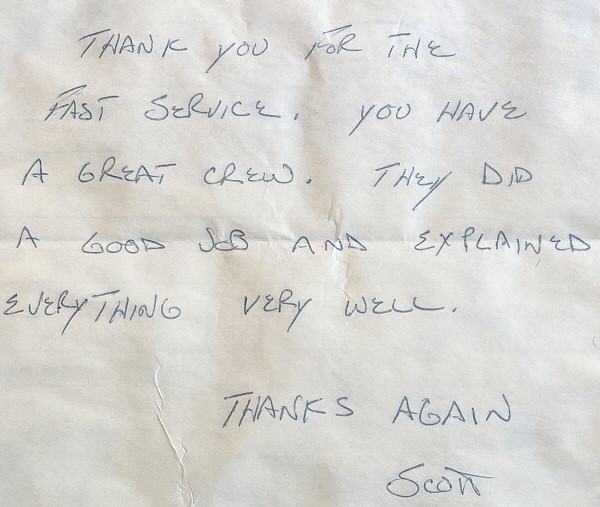 THANK YOU FOR THE
FAST SERVICE. YOU HAVE
A GREAT CREW. THEY DID
A GOOD JOB AND EXPLAINED
EVERYTHING VERY WELL.
THANKS AGAIN
SCOTT